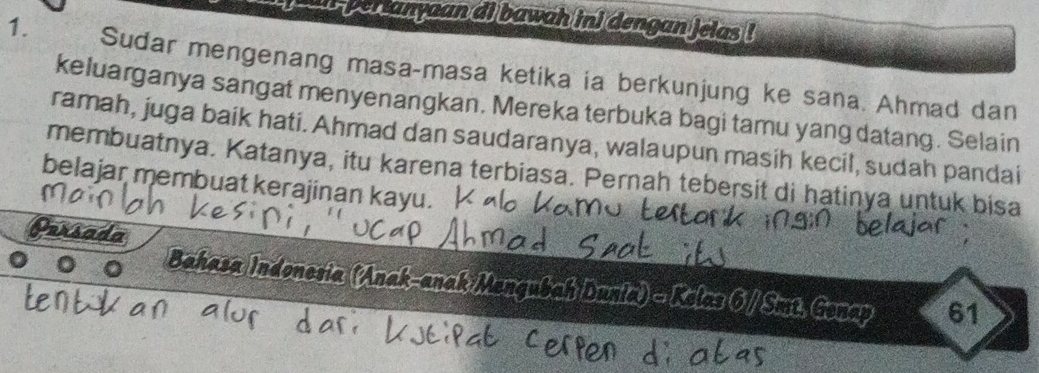 pertanyaan di bawah ini dengan jelas!
1. Sudar mengenang masa-masa ketika ia berkunjung ke sana. Ahmad dan
keluarganya sangat menyenangkan. Mereka terbuka bagi tamu yang datang. Selain
ramah, juga baik hati. Ahmad dan saudaranya, walaupun masih kecil, sudah pandai
membuatnya. Katanya, itu karena terbiasa. Pernah tebersit di hatinya untuk bisa
belajar membuat kerajinan kayu. Kalo kamu tertark ingin belajar ;
mainlah kesini, " ucap Ahmad saat itu
Persada
Bahasa Indonesia (Anak-anak Mengubah Dunia) - Kelas 6 / Smt. Genap 61
tentukan alur dari kutipat cerpen di atas